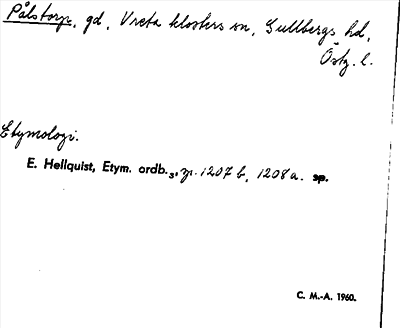 Pålstorp, gd, Vreta klosters sn, Gullbergs hd,
Östg. l.
Etymologi.
E. Hellquist, Etym. ordb.₃, p. 1207 b, 1208 a. sp.
C. M.-A. 1960.